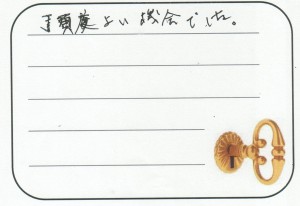 手頃、よい機会でした。